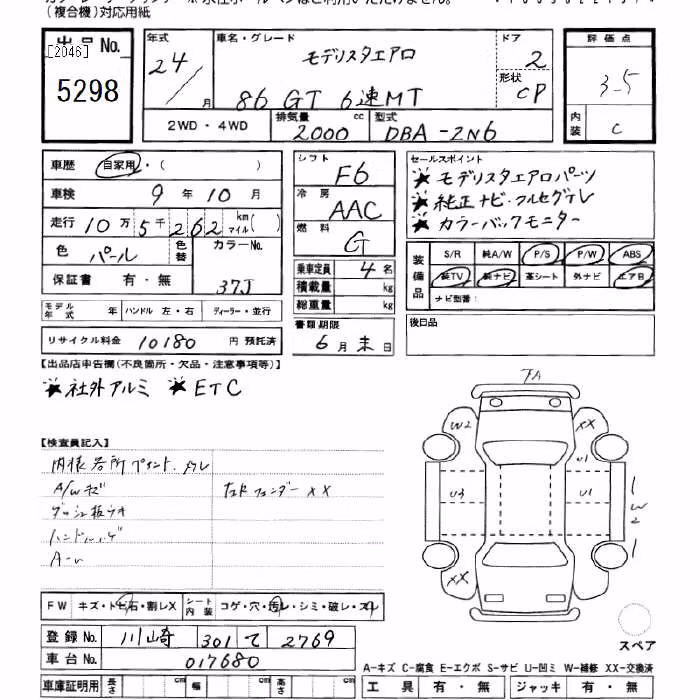 （複合機）対応用紙
出品No.
[2046]
5298
年式 24 月
車名・グレード モデリスタエアロ
86 GT 6速MT
ドア 2
形状 CP
評価点 3.5
内装 C
2WD・4WD
排気量 2000 cc
型式 DBA-ZN6
車歴 自家用・（ ）
車検 9年10月
走行 10万5千262 km マイル( )
色 パール 色替 カラーNo. 37J
保証書 有・無
モデル年式 年 ハンドル 左・右 ディーラー・並行
リサイクル料金 10180 円 預託済
シフト F6
冷房 AAC
燃料 G
乗車定員 4名
積載量 kg
総重量 kg
書類期限 6月末日
セールスポイント
★モデリスタエアロパーツ
★純正ナビ・フルセグテレ
★カラーバックモニター
装備品 S/R 純A/W P/S P/W ABS
純TV 純ナビ 革シート 外ナビ エアB
ナビ型番：
後日品
【出品店申告欄(不良箇所・欠品・注意事項等)】
★社外アルミ ★ETC
【検査員記入】
A/Wキズ
左R フェンダーXX
FW キズ・トビ石・割レX シート内装 コゲ・穴・汚レ・シミ・破レ・スレ
登録No. 川崎 301 て 2769
車台No. 017680
車庫証明用 長さ cm 幅 cm 高さ cm
FA
W2 XX
U3 U1
U1
W2
XX
スペア
A-キズ C-腐食 E-エクボ S-サビ U-凹ミ W-補修 XX-交換済
工具 有・無 ジャッキ 有・無